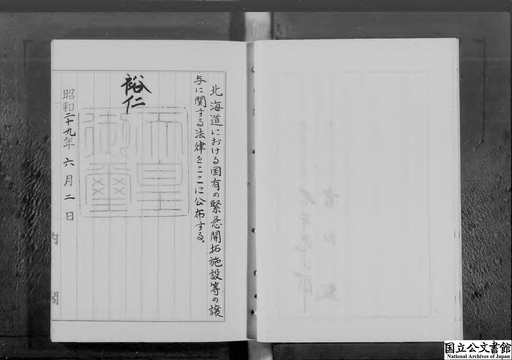 北海道における国有の緊急開拓施設等の譲
与に関する法律をここに公布する。
裕仁
天皇
御璽
昭和二十九年六月二日
内閣
国立公文書館
National Archives of Japan